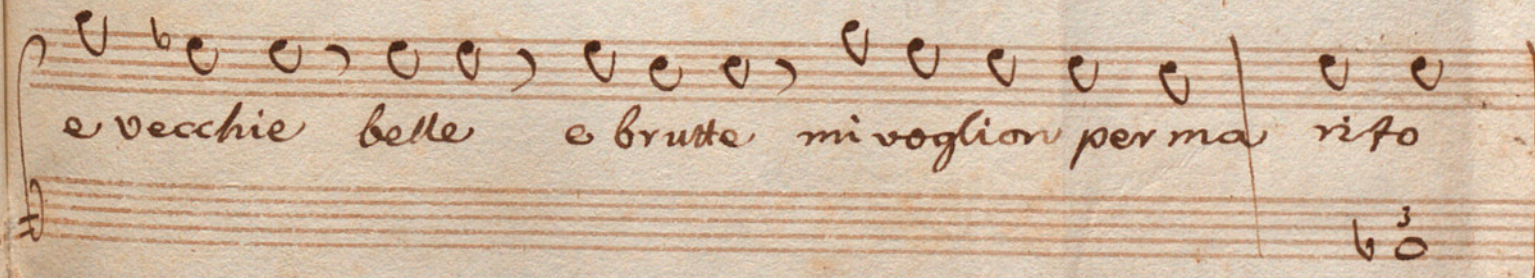 e vecchie belle e brutte mi voglion per ma rito
3